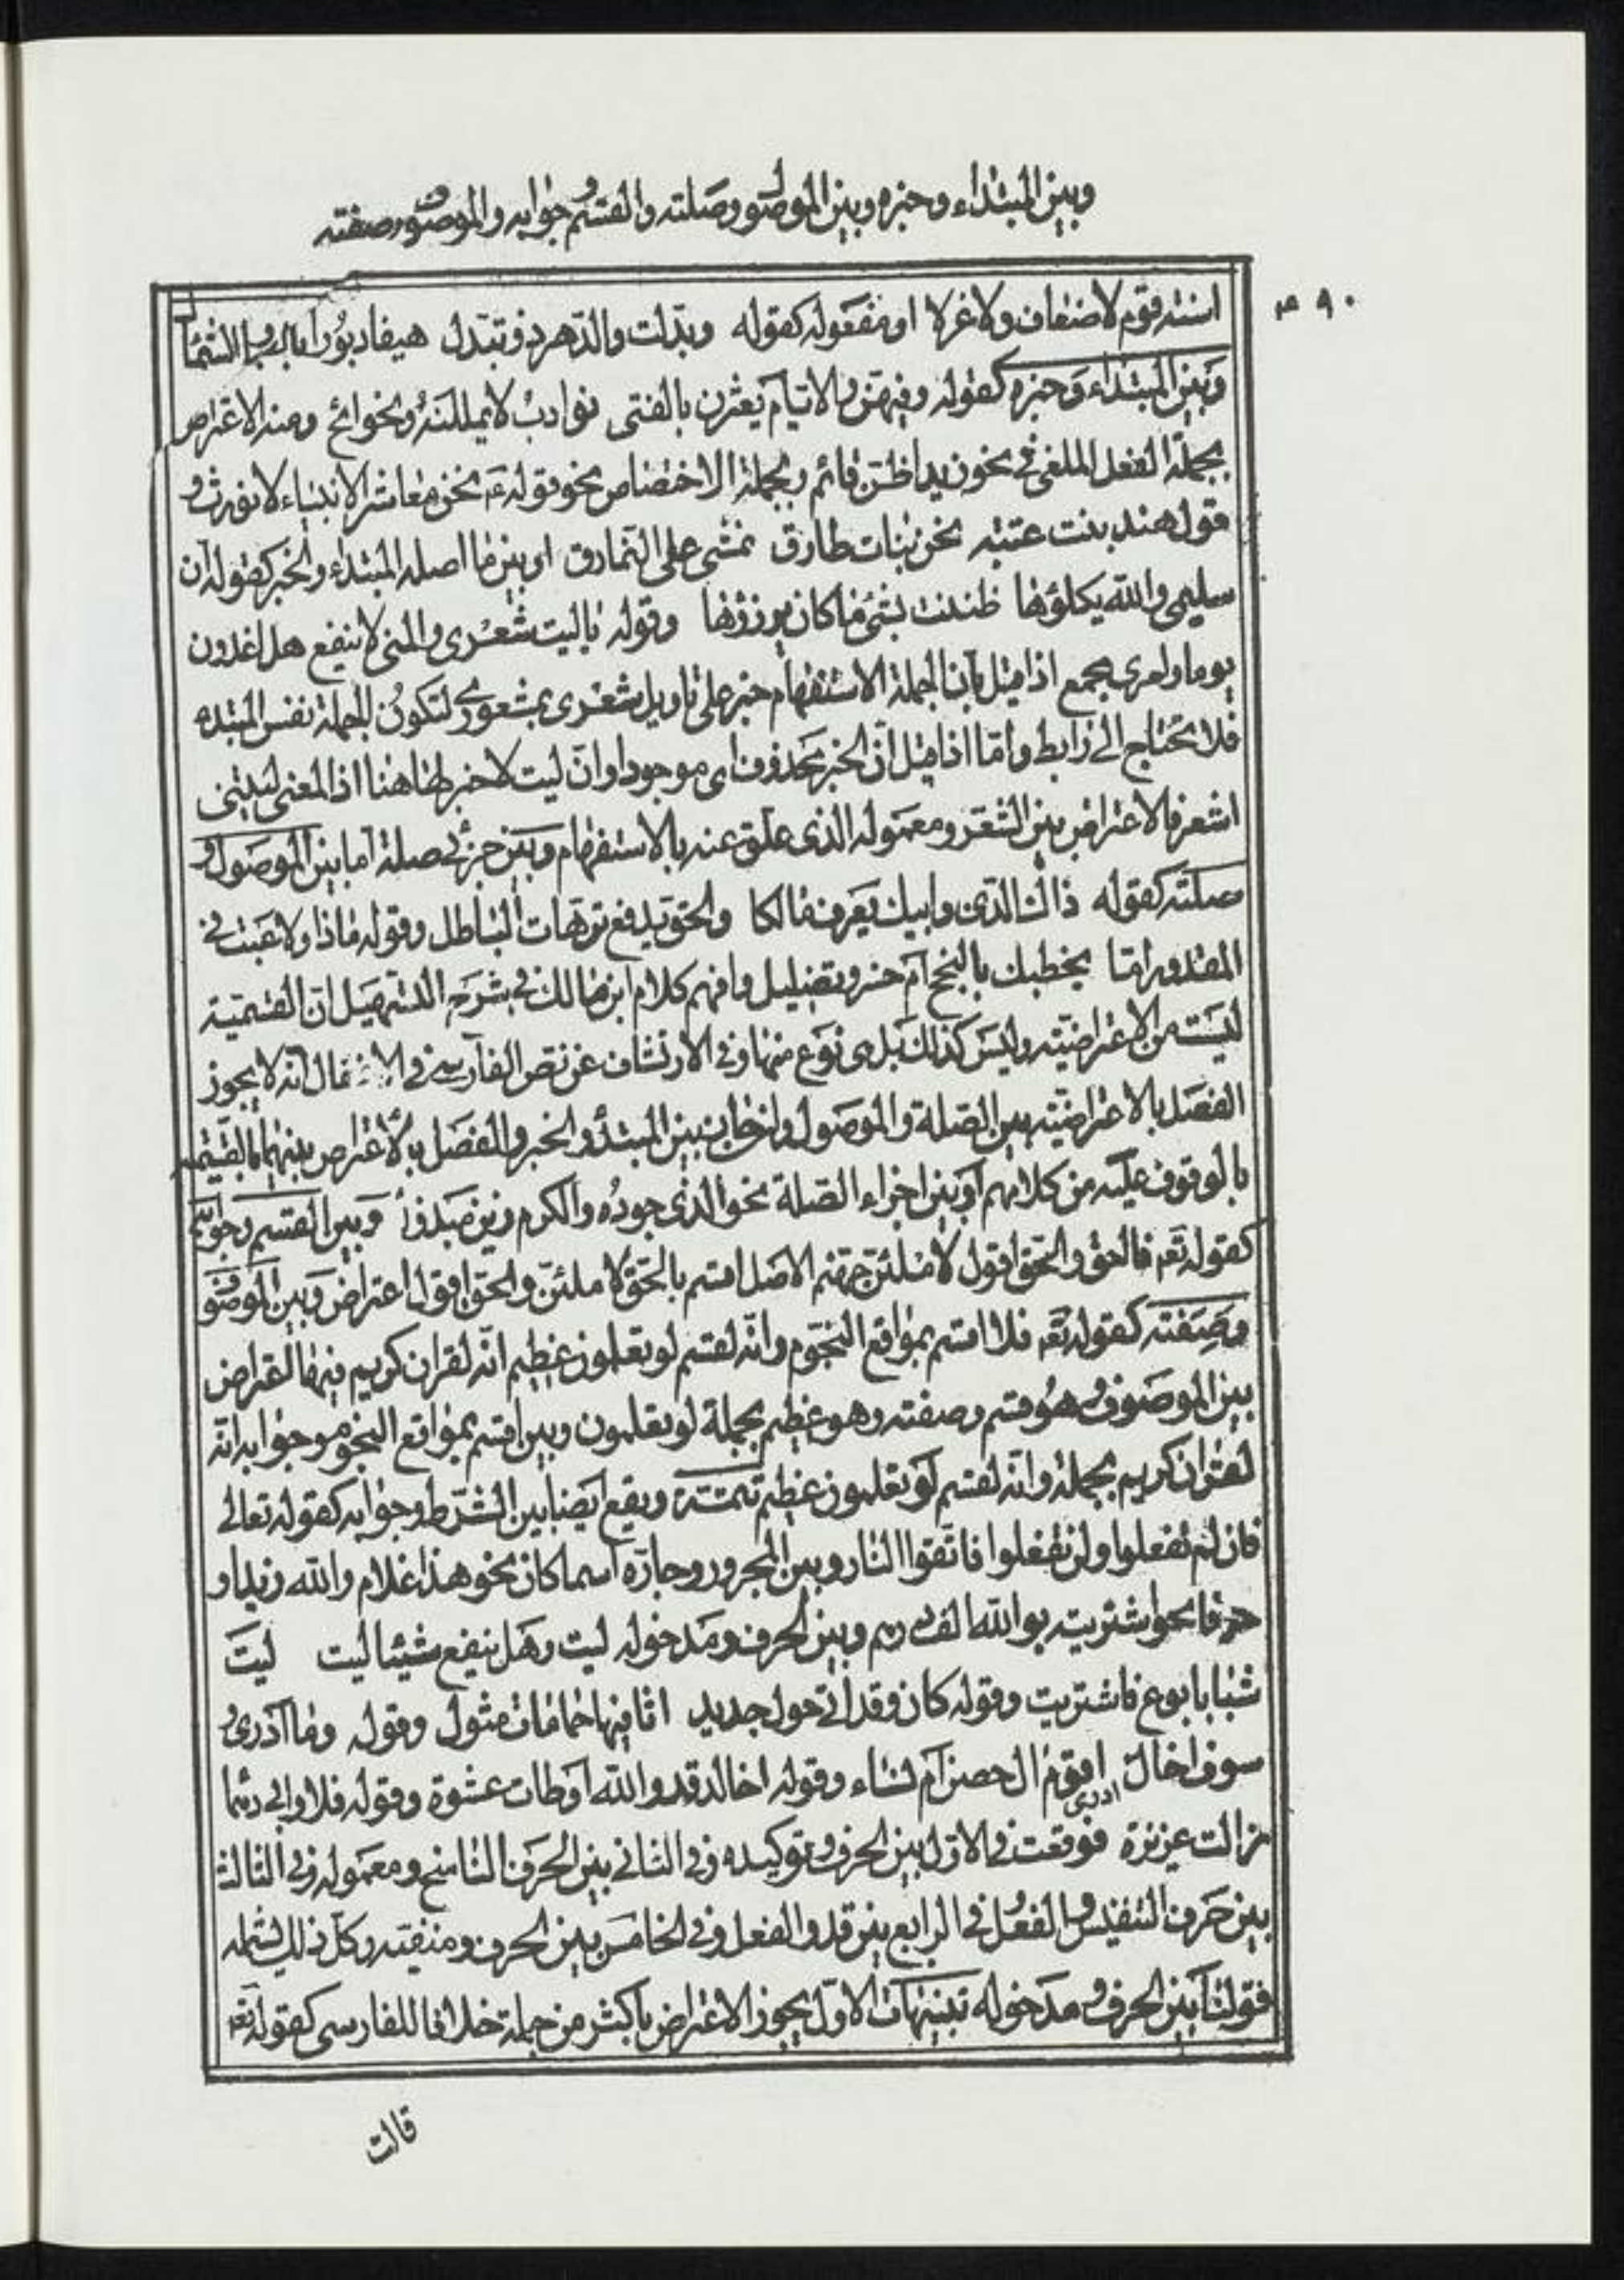 وبين المبتداء وخبره وبين الموصول وصلته والقسم وجوابه والموصوف وصفته
٩٠
اسنة قوم لاضعاف ولاعزلا او مفعوله كقوله وبدلت والدهر ذو تبدل هيفا دبورا بالصبا والشمأل
وبين المبتداء وخبره كقوله وفيهن والايام يعثرن بالفتى نوادب لايمللنه ونوائح ومنه الاعتراض
بجملة الفعل الملغى في نحو زيد اظن قائم وبجملة الاختصاص نحو قوله ع نحن معاشر الانبياء لانورث و
قول هند بنت عتبه نحن بنات طارق نمشي على النمارق او بين ما اصله المبتداء والخبر كقوله ان
سليمى والله يكلؤها ظننت بشئ ما كان يرزؤها وقوله ياليت شعرى والمنى لاينفع هل اغدون
يوما وامرى مجمع اذا قيل بان الجملة الاستفهام خبر على تاويل شعرى بمشعورى لتكون الجملة نفس المبتده
فلا تحتاج الى رابط واما اذا قيل ان الخبر محذوف اى موجود او ان ليت لاخبر لها هنا اذ المعنى ليتنى
اشعر فالاعتراض بين الشعر ومعموله الذى علق عنه بالاستفهام وبين جزئى صلة اما بين الموصول و
صلته كقوله ذاك الذى وابيك يعرف مالكا والحق يدفع ترهات الباطل وقوله ماذا ولاعتب فى
المقدور امتا يخطيك بالنجح ام خسر وتضليل وافهم كلام ابن مالك فى شرح التسهيل ان القسمية
ليست من الاعتراضية وليس كذلك بل هى نوع منها وفى الارتشاف عن نص الفارسى فى الاغفال انه لايجوز
الفصل بالاعتراضية بين الصلة والموصول وانجاب بين المبتدؤ والخبر والفصل بالاعتراض بينهما بالقسمية
بالوقوف عليه من كلامهم او بين اجزاء الصلة نحو الذى جوده والكرم زين مبذول وبين القسم وجوابه
كقوله تع فالحق والحق اقول لاملئن جهنم الاصل اقسم بالحق لاملئن والحق اقول اعتراض وبين الموصوف
وصفته كقوله تع فلا اقسم بمواقع النجوم وانه لقسم لو تعلمون عظيم انه لقران كريم فيهما اعتراض
بين الموصوف وهو قسم وصفته وهو عظيم بجملة لو تعلمون وبين اقسم بمواقع النجوم وجوابه انه
لقران كريم بجملة وانه لقسم لو تعلمون عظيم تتمة ويقع ايضا بين الشرط وجوابه كقوله تعالى
فان لم تفعلوا ولن تفعلوا فاتقوا النار وبين المجرور وجاره اسما كان نحو هذا غلام والله زيد او
حرفا نحو اشتريته بوالله الف درهم وبين الحرف ومدخوله ليت وهل ينفع شيئا ليت ليت
شبابا بوع فاشتريت وقوله كان وقد اتى حول جديد اثافيها حمامات مثول وقوله وما ادرى و
سوف اخال ادرى اقوم ال حصن ام نساء وقوله اخالد قد والله اوطات عشوة وقوله فلا وابى دهما
زالت عزيزة فوقعت فى الاول بين الحرف وتوكيده وفى الثانى بين الحرف الناسخ ومعموله وفى الثالث
بين حرف التنفيس والفعل وفى الرابع بين قد والفعل وفى الخامس بين الحرف ومنفيته وكل ذلك يشمله
قولنا بين الحرف ومدخوله تنبيهات الاول يجوز الاعتراض باكثر من جملة خلافا للفارسى كقوله تع
قالت